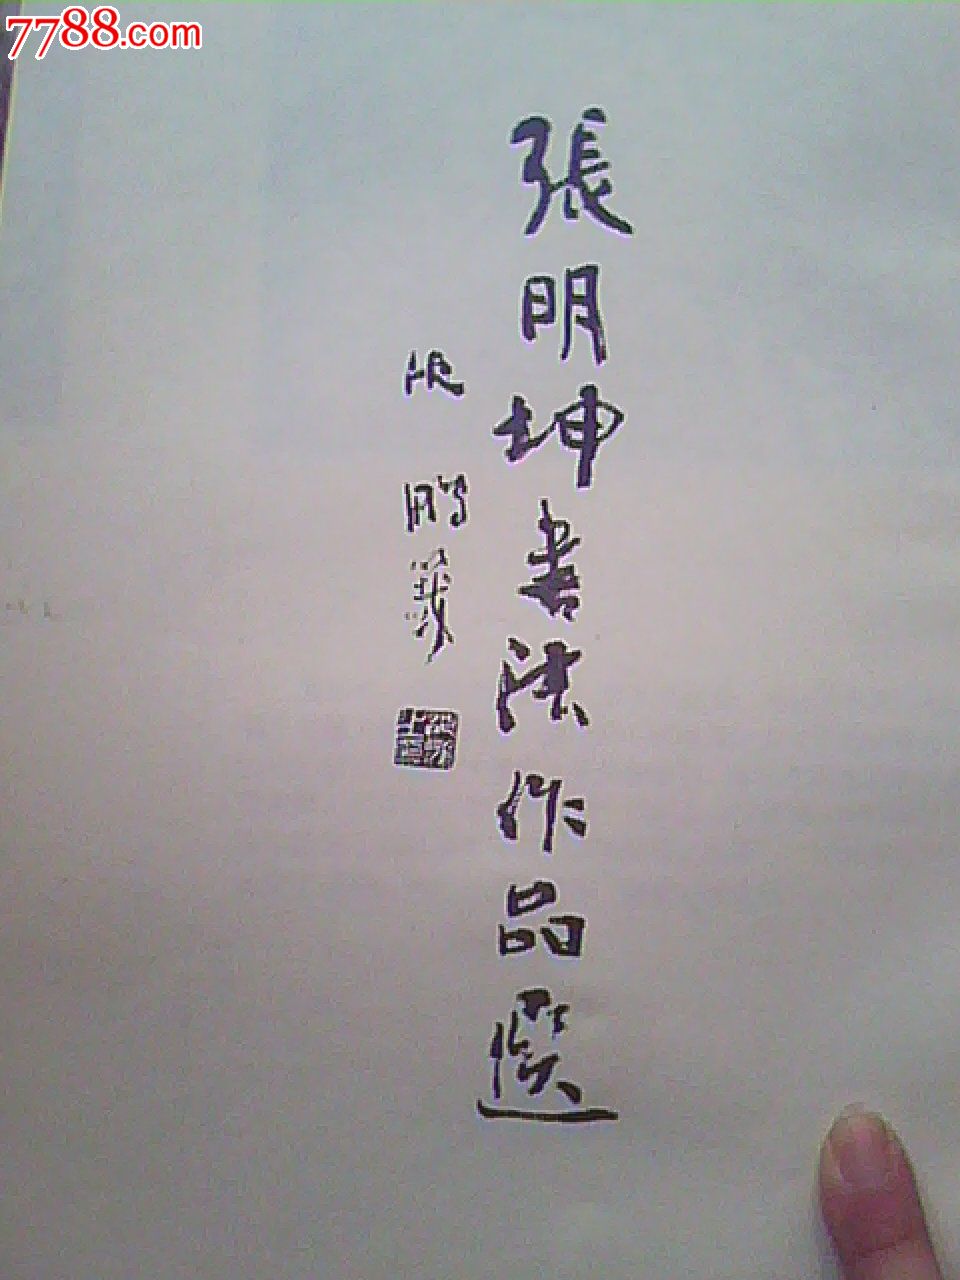 7788.com
張明坤書法作品選
沈鹏